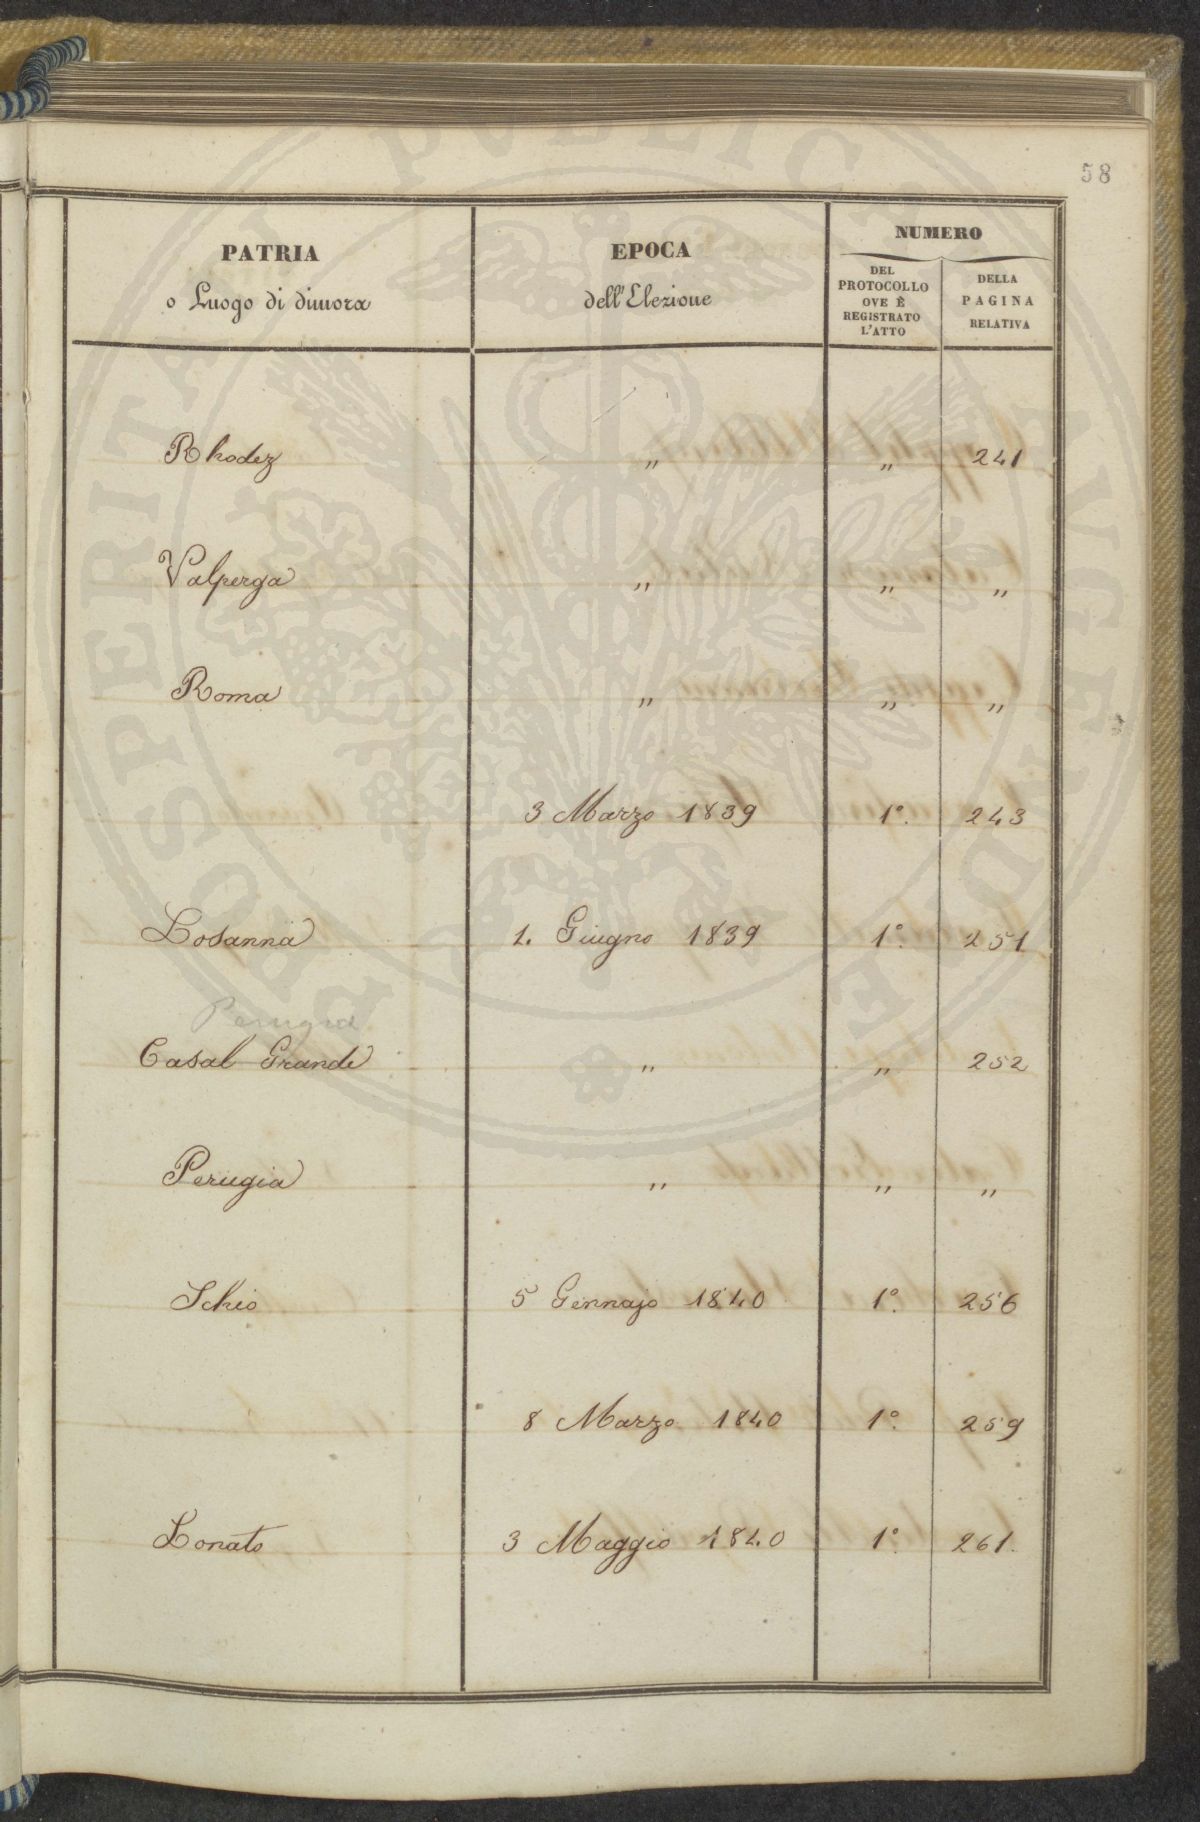 58
PATRIA
o Luogo di dimora
EPOCA
dell'Elezione
NUMERO
DEL
PROTOCOLLO
OVE È
REGISTRATO
L'ATTO
DELLA
PAGINA
RELATIVA
Rhodez " " 241
Valperga " " "
Roma " " "
3 Marzo 1839 1º. 243
Losanna 1. Giugno 1839 1º. 251
Perugia
Casal Grande " " 252
Perugia " " "
Schio 5 Gennajo 1840 1º. 256
8 Marzo 1840 1º. 259
Lonato 3 Maggio 1840 1º. 261.
PROSPERITATI PVBLICAE AVGENDAE